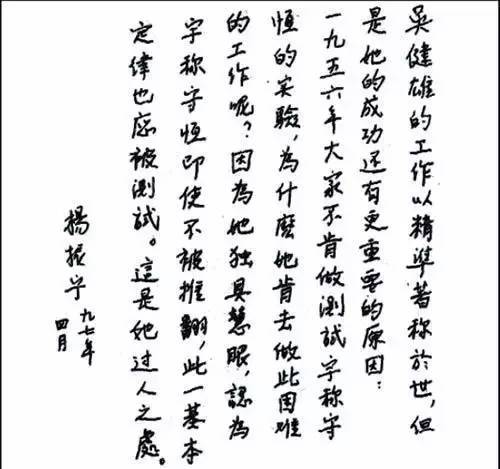 吳健雄的工作以精準著称於世，但
是她的成功还有更重要的原因：
一九五六年大家不肯做測試宇称守
恒的实驗，為什麽她肯去做此困难
的工作呢？因為她独具慧眼，認為
宇称守恒即使不被推翻，此一基本
定律也应被測試。這是她过人之處。
楊振宁
九七年
四月